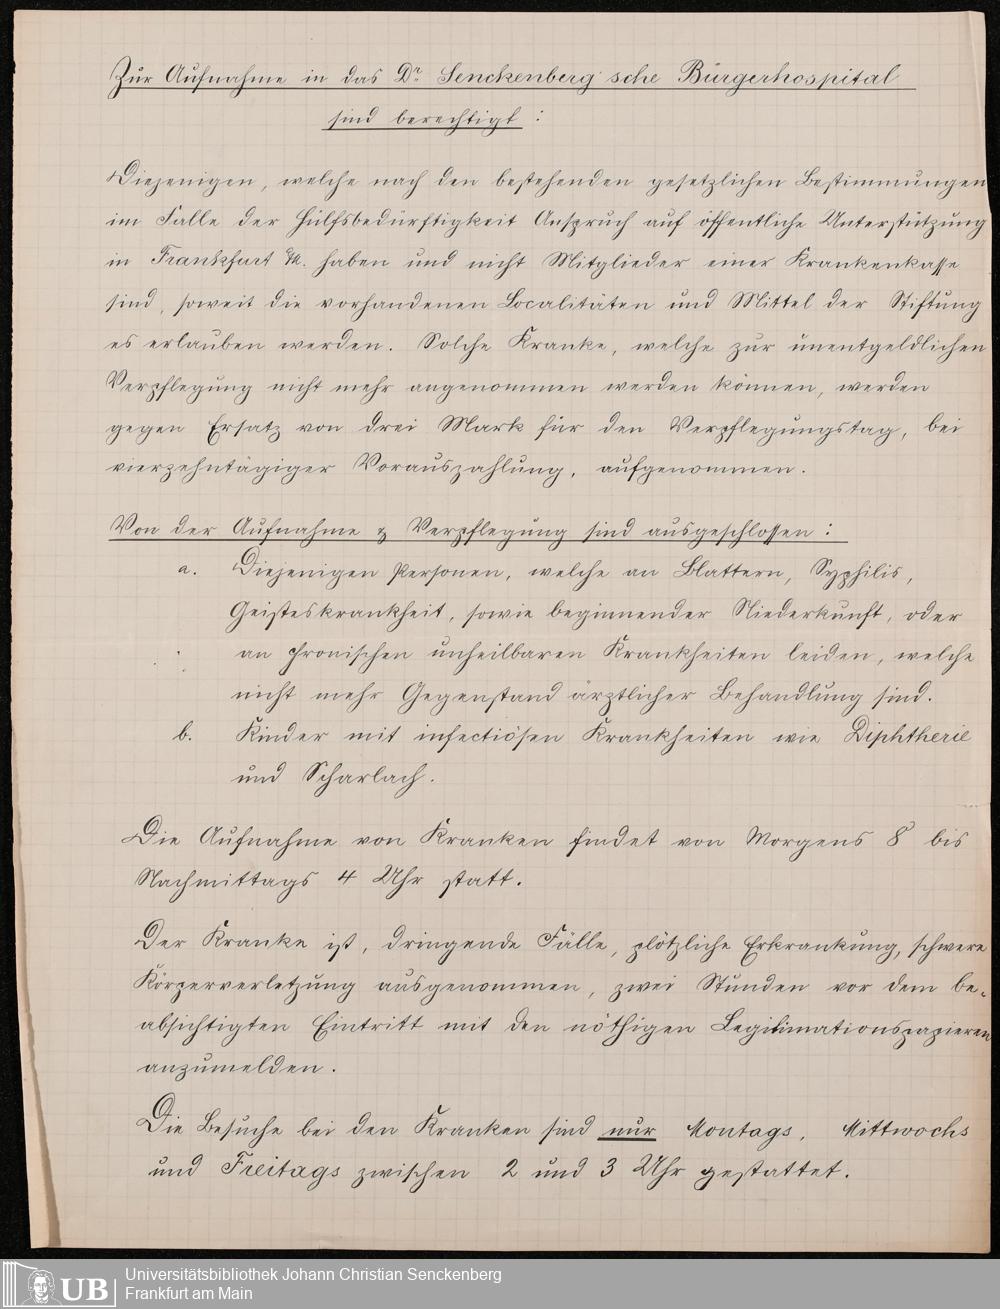 Zur Aufnahme in das Dr. Senckenberg'sche Bürgerhospital
sind berechtigt:
Diejenigen, welche nach den bestehenden gesetzlichen Bestimmungen
im Falle der Hülfsbedürftigkeit Anspruch auf öffentliche Unterstützung
in Frankfurt a/M. haben und nicht Mitglieder einer Krankenkasse
sind, soweit die vorhandenen Localitäten und Mittel der Stiftung
es erlauben werden. Solche Kranke, welche zur unentgeldlichen
Verpflegung nicht mehr angenommen werden können, werden
gegen Ersatz von drei Mark für den Verpflegungstag, bei
vierzehntägiger Vorauszahlung, aufgenommen.
Von der Aufnahme & Verpflegung sind ausgeschlossen:
a. Diejenigen Personen, welche an Blattern, Syphilis,
Geisteskrankheit, sowie beginnender Niederkunft, oder
an chronischen unheilbaren Krankheiten leiden, welche
nicht mehr Gegenstand ärztlicher Behandlung sind.
b. Kinder mit infectiösen Krankheiten wie Diphtherie
und Scharlach.
Die Aufnahme von Kranken findet von Morgens 8 bis
Nachmittags 4 Uhr statt.
Der Kranke ist, dringende Fälle, plötzliche Erkrankung, schwere
Körperverletzung ausgenommen, zwei Stunden vor dem be-
absichtigten Eintritt mit den nöthigen Legitimationspapieren
anzumelden.
Die Besuche bei den Kranken sind nur Montags, Mittwochs
und Freitags zwischen 2 und 3 Uhr gestattet.
UB
Universitätsbibliothek Johann Christian Senckenberg
Frankfurt am Main